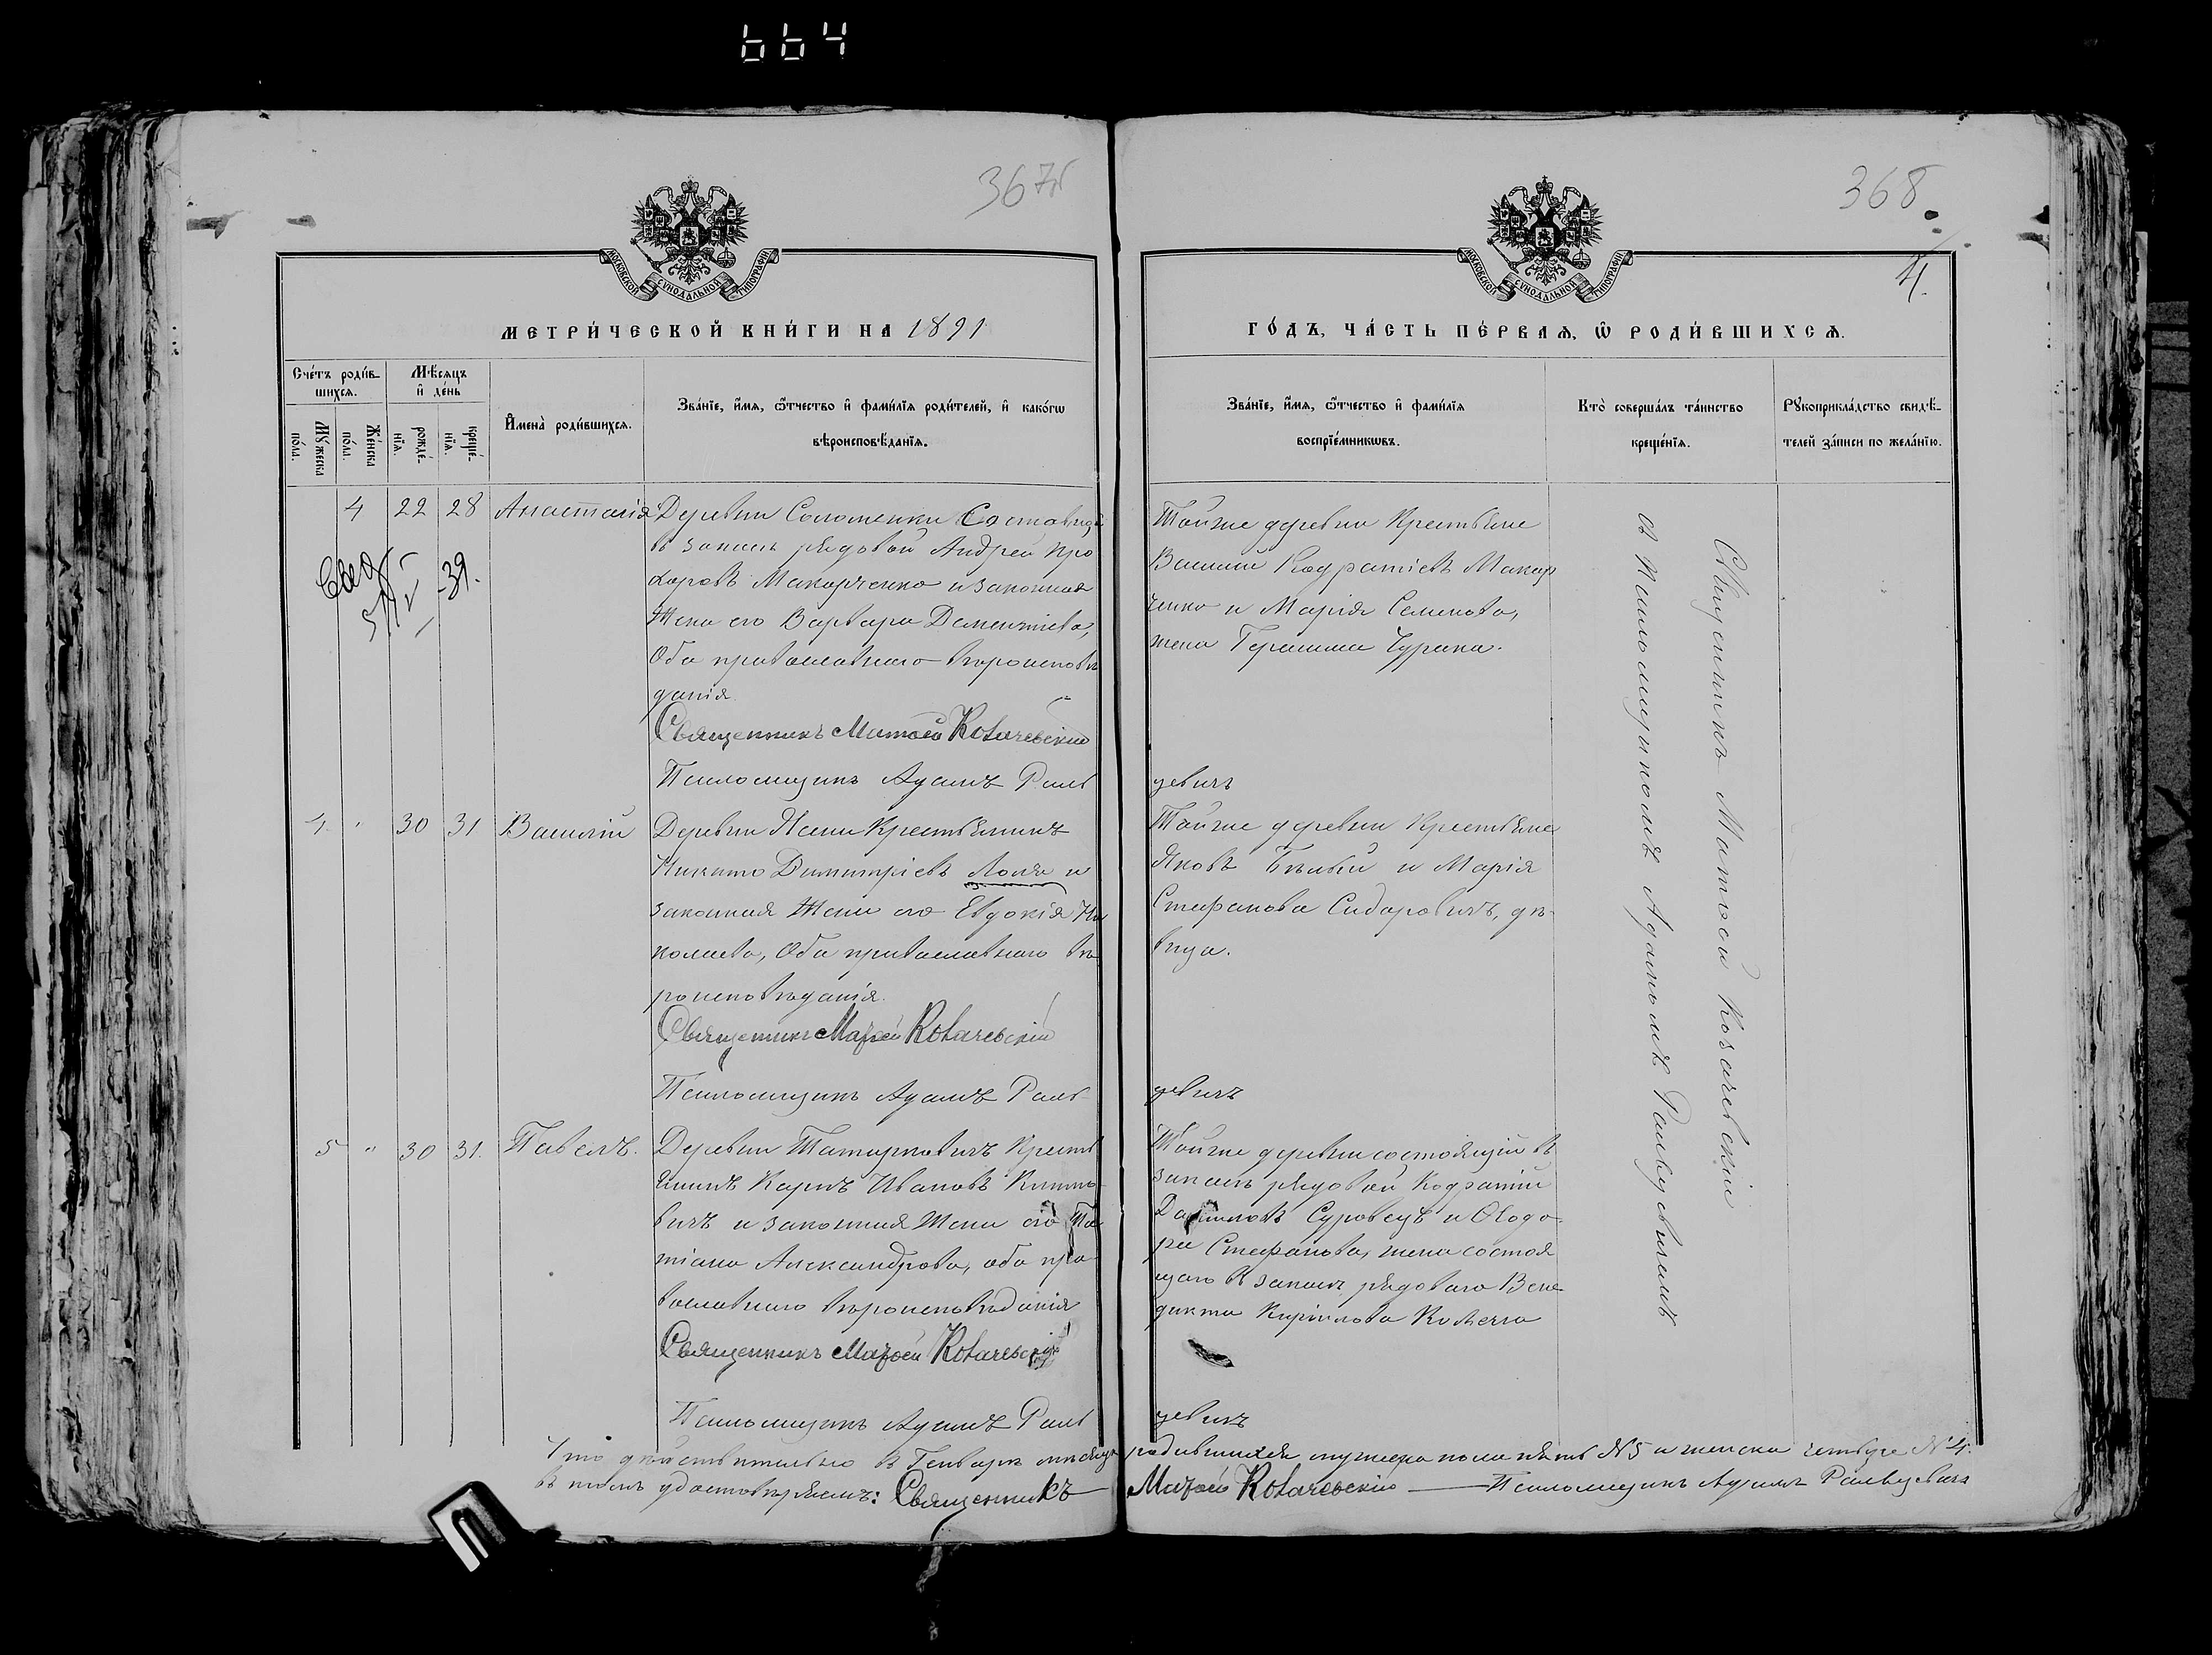 664
367
368
4.
МОСКОВСКОЙ СѴНОДАЛЬНОЙ ТИПОГРАФІИ
МОСКОВСКОЙ СѴНОДАЛЬНОЙ ТИПОГРАФІИ
МЕТРИ́ЧЕСКОЙ КНИ́ГИ НА 1891
ГО́ДЪ, ЧА́СТЬ ПЕ́РВАѦ, Ѡ҆ РОДИ́ВШИХСѦ.
Сче́тъ роди́в-
шихсѧ.
Мѣ́сѧцъ
и҆ де́нь
Мꙋ́жеска
по́ла.
Же́нска
по́ла.
рожде́-
нїѧ.
креще́-
нїѧ.
И҆мена̀ роди́вшихсѧ.
Зва́нїе, и҆́мѧ, ѻ҆́тчество и҆ фами́лїѧ роди́телей, и҆ како́гѡ
вѣроисповѣ́данїѧ.
Зва́нїе, и҆́мѧ, ѻ҆́тчество и҆ фами́лїѧ
воспрїе́мникѡвъ.
Кто̀ соверша́лъ та́инство
креще́нїѧ.
Рꙋкоприкла́дство свидѣ́-
телей за́писи по жела́нїю.
4 22 28 Анастасія
Деревни Соломенки Состоящій
въ запасѣ рядовой Андрей Про
хоровъ Макарченко и законная
Жена его Варвара Дементіева,
Оба православнаго вѣроисповѣ
данія
Священникъ Матѳей Козачевскій
Псаломщикъ Адамъ Раль
Тойже деревни Крестьяне
Василій Кодратіевъ Макар
ченко и Марія Семенова,
жена Герасима Чурака.
цевичъ
39.
4. " 30 31 Василій
Деревни Ясени Крестьянинъ
Никита Димитріевъ Лопя и
законная Жена его Евдокія Ни
колаева, Оба православнаго вѣ
роисповѣданія.
Священникъ Матѳей Козачевскій
Псаломщикъ Адамъ Раль
Тойже деревни Крестьяне
Яковъ Бѣлый и Марія
Стефанова Сидоровичъ, дѣ-
вица.
цевичъ
5 " 30 31. Павелъ.
Деревни Татарковичъ Кресть
янинъ Карпъ Ивановъ
вичъ и законная Жена его Та
тіана Александрова, оба пра
вославнаго вѣроисповѣданія
Священникъ Матѳей Козачевскій
Псаломщикъ Адамъ Раль
Тойже деревни состоящій въ
запасѣ рядовой Кодратій
Даниловъ Суровецъ и Ѳеодо
ра Стефанова, жена состоя
щаго въ запасѣ рядоваго Вене
дикта Кирилова
цевичъ
Священникъ Матѳей Козачевскій
съ Псаломщикомъ Адамомъ
Что дѣйствительно въ Генварѣ мѣсяцѣ родившихся мужеска пола пять №5 и женска четыре №4.
въ томъ удостовѣряемъ: Священникъ Матѳей Козачевскій Псаломщикъ Адамъ